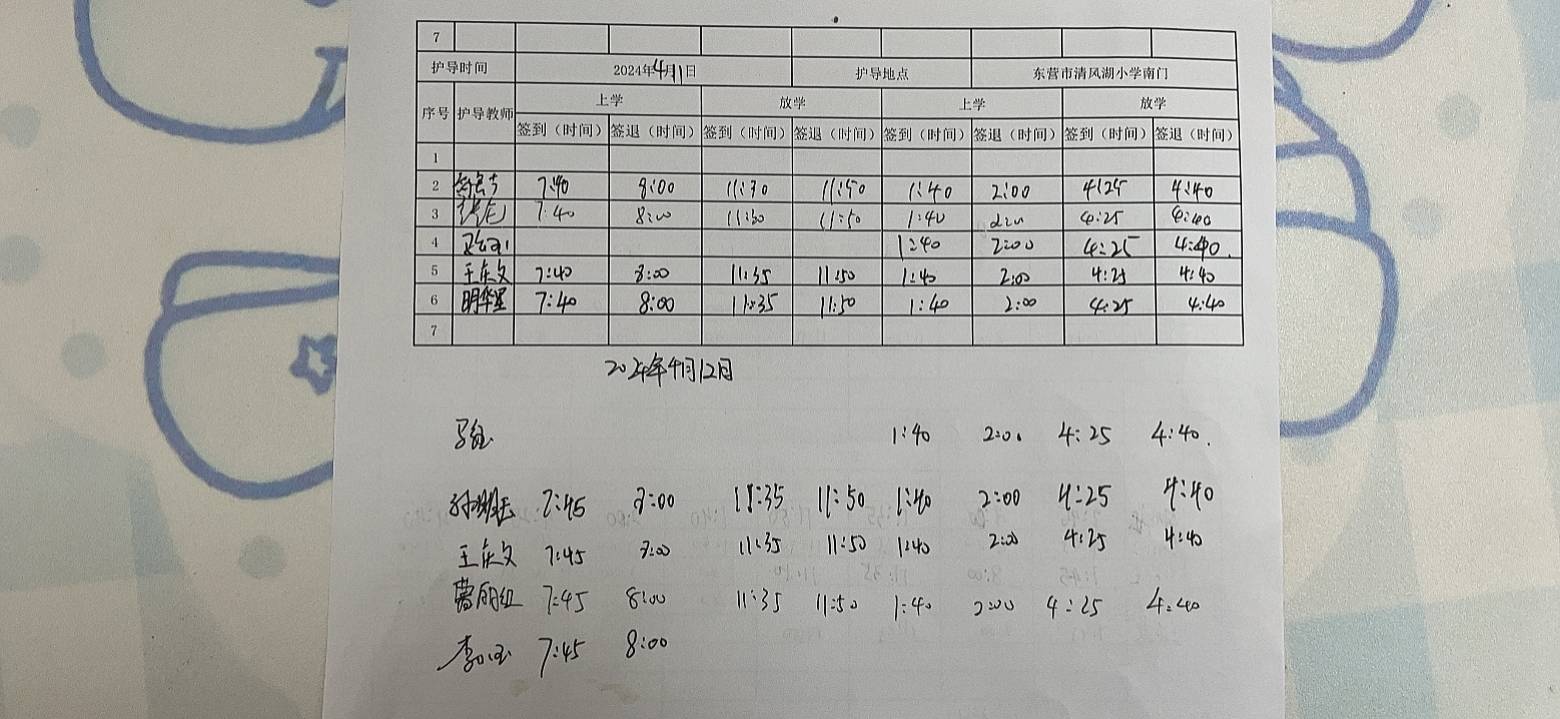 7
护导时间 2024年4月11日 护导地点 东营市清风湖小学南门
序号 护导教师 上学 放学 上学 放学
签到（时间） 签退（时间） 签到（时间） 签退（时间） 签到（时间） 签退（时间） 签到（时间） 签退（时间）
1
2 7:40 8:00 11:30 11:50 1:40 2:00 4:25 4:40
3 7:40 8:00 11:30 11:50 1:40 4:25 4:40
4 1:40 2:00 4:25 4:40.
5 王庆文 7:40 8:00 11:35 11:50 1:40 2:00 4:25 4:40
6 7:40 8:00 11:35 11:50 1:40 2:00 4:25 4:40
7
2024年4月12日
1:40 2:00 4:25 4:40.
7:45 8:00 11:35 11:50 1:40 2:00 4:25 4:40
王庆文 7:45 8:00 11:35 11:50 1:40 2:00 4:25 4:40
7:45 8:00 11:35 11:50 1:40 2:00 4:25 4:40
7:45 8:00